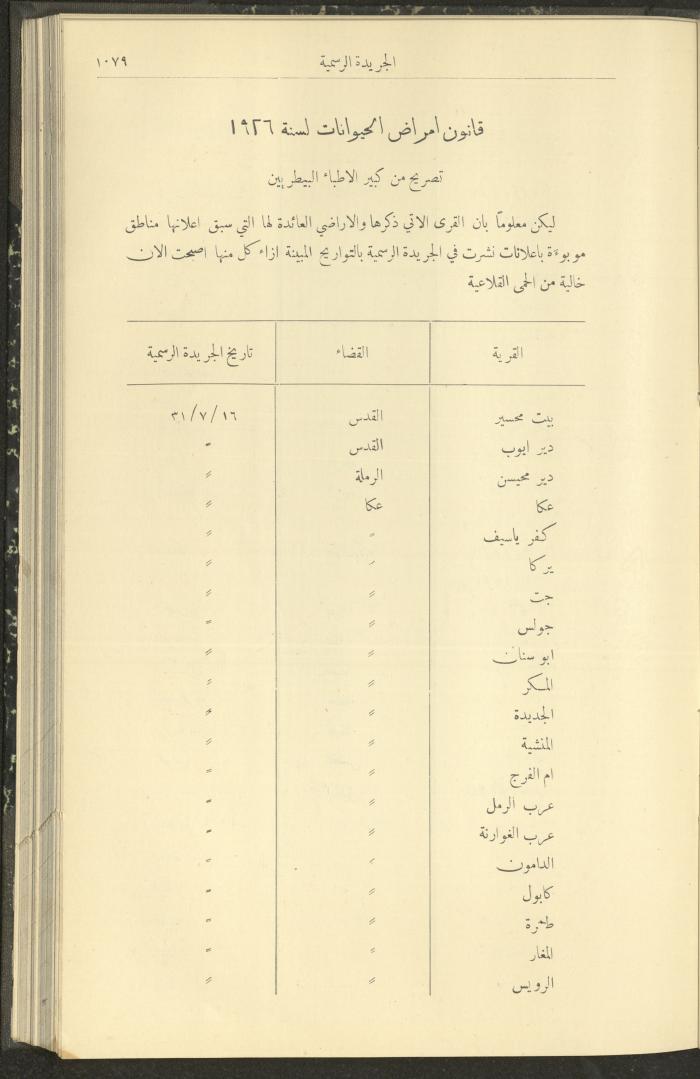 الجريدة الرسمية ١٠٧٩
قانون امراض الحيوانات لسنة ١٩٢٦
تصريح من كبير الاطباء البيطريين
ليكن معلوماً بان القرى الاتي ذكرها والاراضي العائدة لها التي سبق اعلانها مناطق
موبوءة باعلانات نشرت في الجريدة الرسمية بالتواريخ المبينة ازاء كل منها اصبحت الان
خالية من الحمى القلاعية
القرية القضاء تاريخ الجريدة الرسمية
بيت محسير القدس ١٦/٧/٣١
دير ايوب القدس 〃
دير محيسن الرملة 〃
عكا عكا 〃
كفر ياسيف 〃 〃
يركا 〃 〃
جت 〃 〃
جولس 〃 〃
ابو سنان 〃 〃
المسكر 〃 〃
الجديدة 〃 〃
المنشية 〃 〃
ام الفرج 〃 〃
عرب الرمل 〃 〃
عرب الغوارنة 〃 〃
الدامون 〃 〃
كابول 〃 〃
طمرة 〃 〃
المغار 〃 〃
الرويس 〃 〃